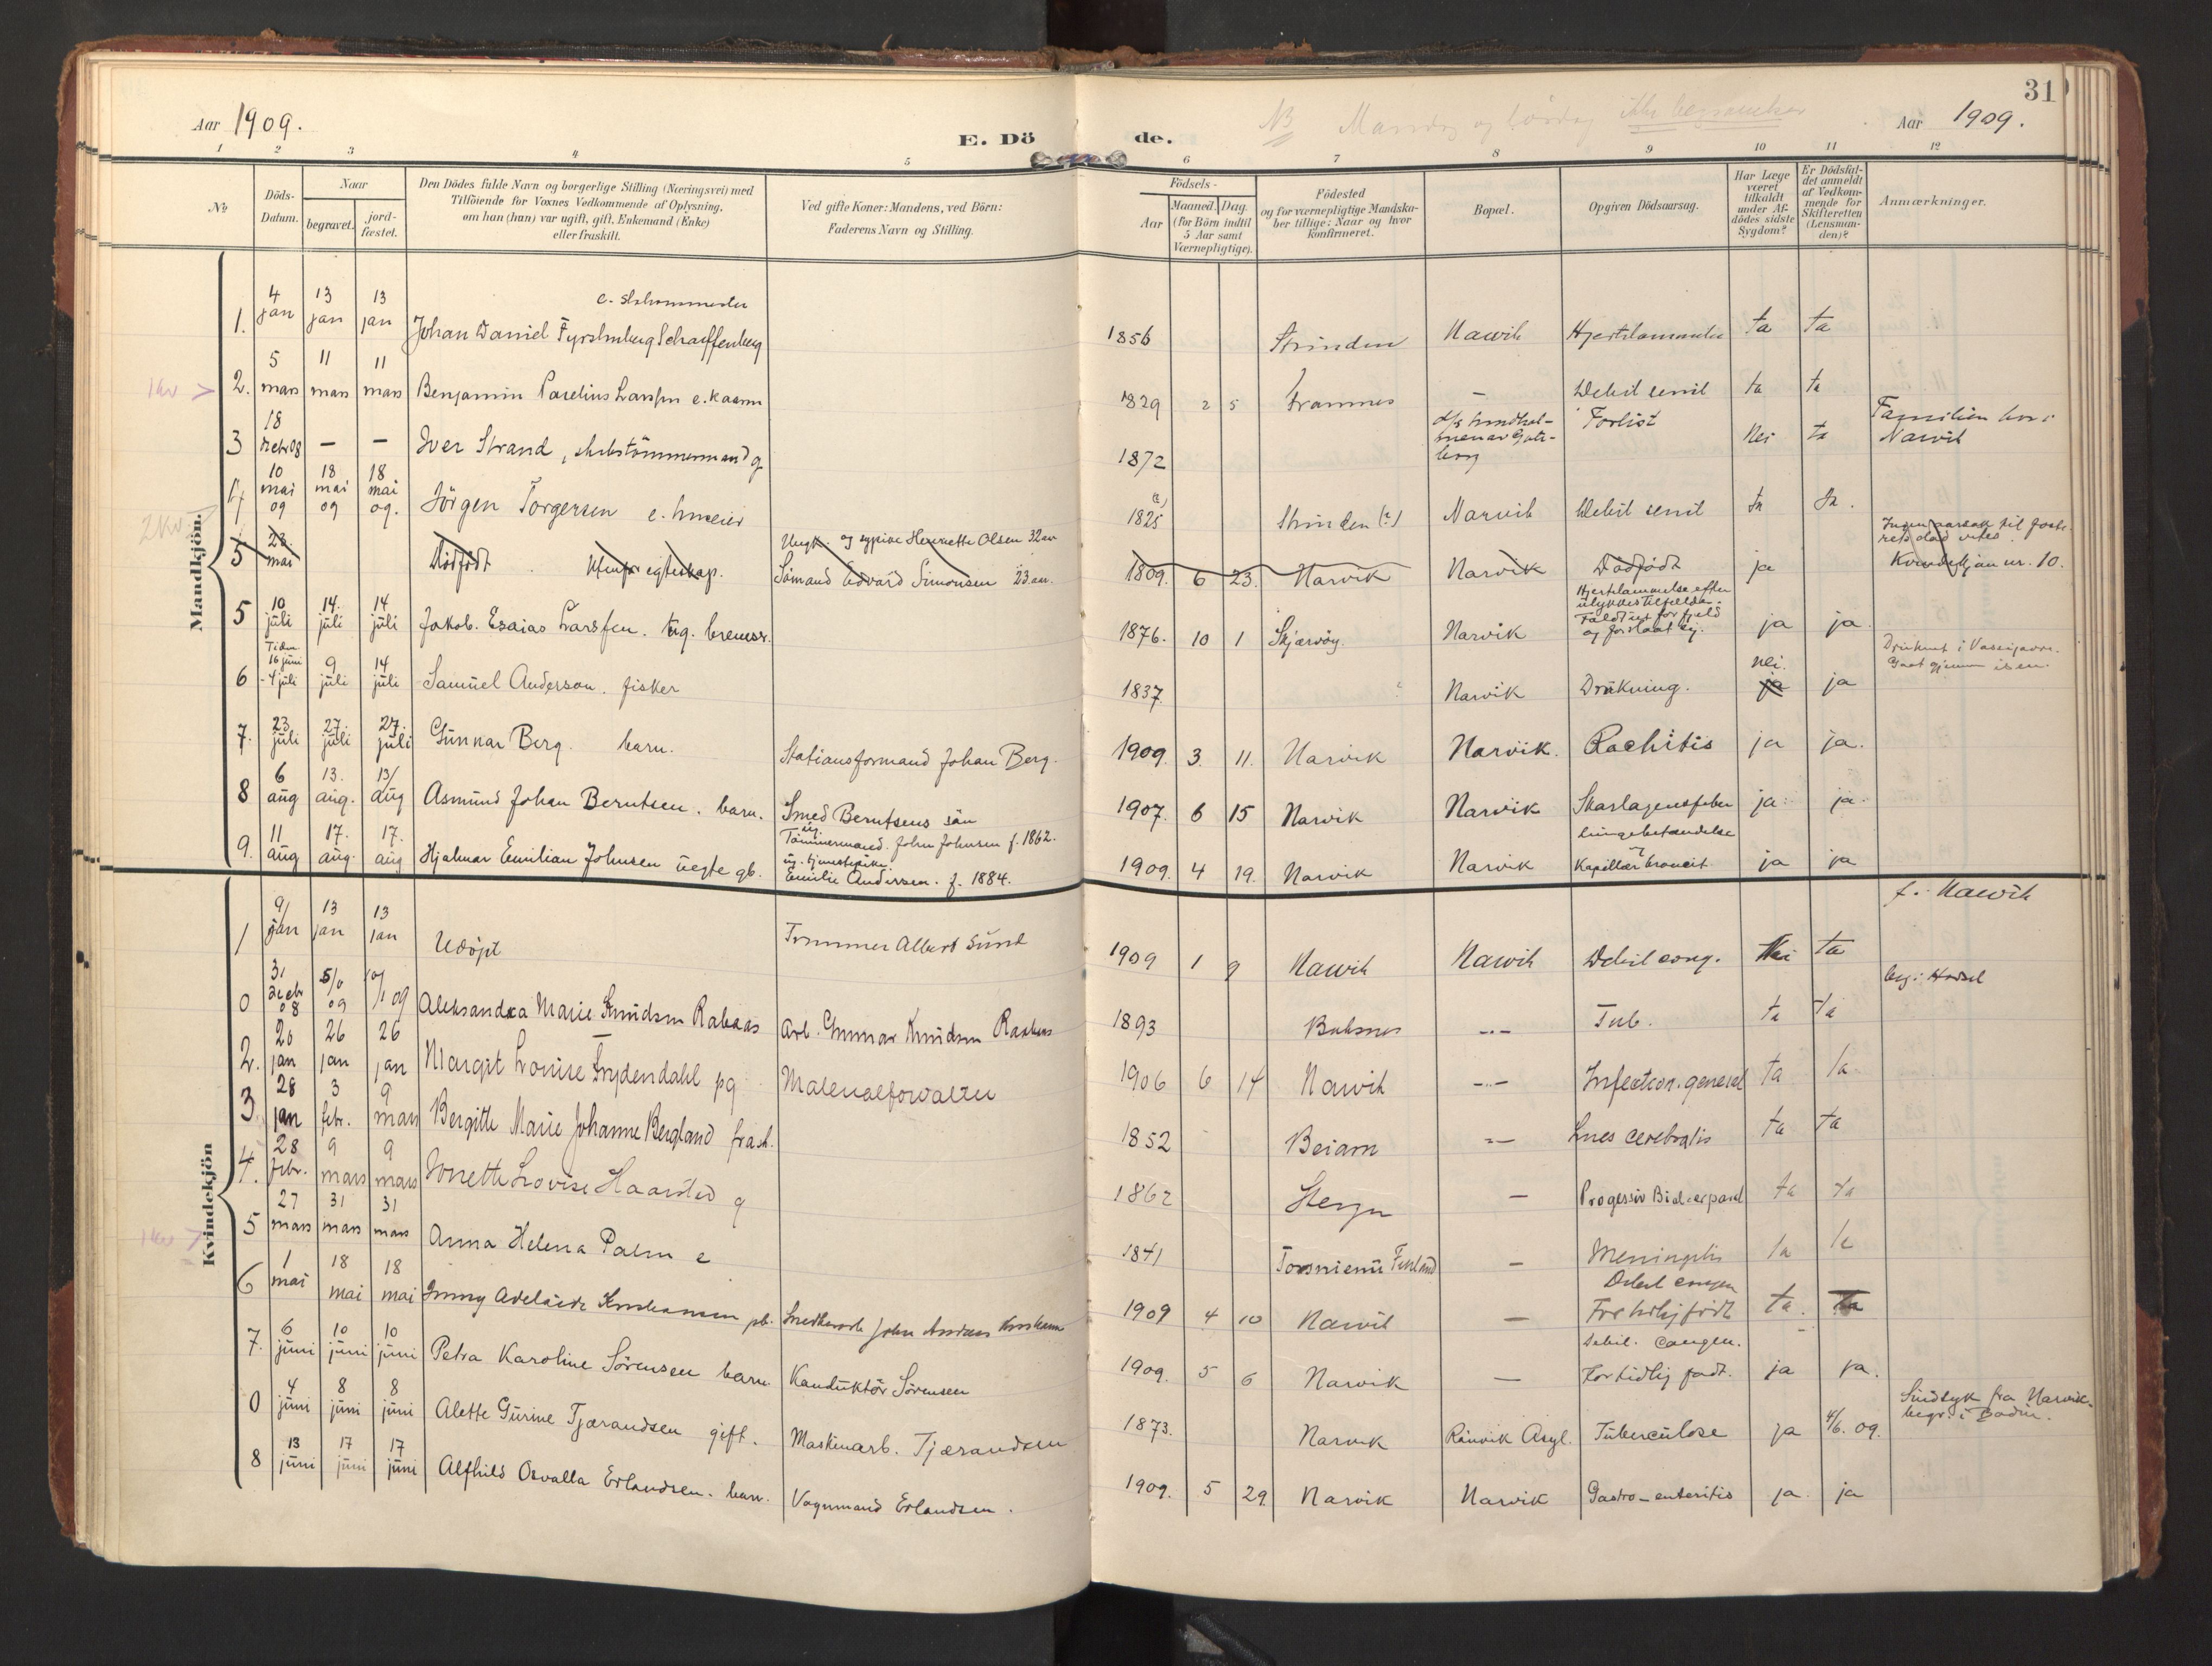 Aar 1909.
E. Dö
de.
NB Mandag og Lördag ikke begravelser
Aar 1909.
31
1 2 3 4 5 6 7 8 9 10 11 12
No
Döds-
Datum.
Naar
begravet.
jord-
fæstet.
Den Dödes fulde Navn og borgerlige Stilling (Næringsvei) med
Tilföiende for Voxnes Vedkommende af Oplysning,
om han (hun) var ugift, gift, Enkemand (Enke)
eller fraskilt.
Ved gifte Koner: Mandens, ved Börn:
Faderens Navn og Stilling.
Födsels-
Aar
Maaned. Dag.
(for Börn indtil
5 Aar samt
Værnepligtige).
Födested
og for værnepligtige Mandska-
ber tillige: Naar og hvor
konfirmeret.
Bopæl.
Opgiven Dödsaarsag.
Har Læge
været
tilkaldt
under Af-
dödes sidste
Sygdom?
Er Dödsfal-
det anmeldt
af Vedkom-
mende for
Skifteretten
(Lensman-
den)?
Anmærkninger.
Mandkjön.
1. 4 jan 13 jan 13 jan Johan Daniel Schaffenberg 1856 Strinden Narvik ja ja
1kv > 2. 5 mars 11 mars 11 mars Benjamin Parelius Larssen e. 1829 2 5 Trannes — Debil senil ja ja
3 18 decbr 08 — — Iver Strand, skibstömmermand g 1872 Forlist Nei ja Familien bor i
Narvik
2kv > 4 10 mai 09 18 mai 09 18 mai 09. Jörgen Torgersen e. 1825 (?) Strinden (?) Narvik Debil senil ja ja.
5 23. mai Dödfödt. Utenfor egteskap. Ungk. og sypike Henriette Olsen 32 aar
Sömand Edvard Simonsen 23 aar. 1909. 6 23. Narvik Narvik Dödfödt ja
Ingen aarsak til foste-
rets död vites.
Kvindekjön nr. 10.
5 10 juli 14. juli 14 juli Jakob. Esaias Larssen. ug. bremser. 1876. 10 1 Skjærvöy. Narvik Hjertelammelse efter
ulykkestilfelde.
Faldt ut for fjeld
og forslaat sig. ja ja
6 Tiden
16 juni
- 4 juli 9 juli 14 juli Samuel Anderson. fisker 1837. Narvik Drukning. nei. ja ja Druknet i Vassijaure.
Gaat gjennem isen.
7. 23 juli 27. juli 27. juli Gunnar Berg. barn. Stationsformand Johan Berg. 1909. 3. 11. Narvik Narvik. Rachitis ja ja.
8 6 aug 13. aug. 13/ aug Asmund Johan Berntsen. barn. Smed Berntsens sön 1907. 6 15 Narvik Narvik Skarlagensfeber ja. ja.
9. 11 aug 17. aug. 17. aug Hjalmar Emilian Johnsen uegte gb. ug. Tömmermand. John Johnsen f. 1862.
ug. tjenestepike
Emilie Andersen. f. 1884. 1909. 4 19. Narvik Narvik Lungebetændelse
Kapillær broncit. ja ja
Kvindekjön
1 9/ jan 13 jan 13 jan Udöpt Albert Sund 1909 1 9 Narvik Narvik Debil cong. Nei ja f. Narvik
0 31 decbr 08 Aleksandra Marie Knudsen Arb. Gunnar Knudsen 1893 Buksnes -"- Tub. ja ja beg. i Hadsel
2. 20 jan 26 jan 26 jan Margit Lovise Frydendahl pg Materialforvalter 1906 6 14 Narvik -"- Infection. general ja ja
3 28 jan 3 febr. 9 mars Bergitte Marie Johanne Bergland frask. 1852 Beiarn -"- Lues cerebralis ja ja
4. 28 febr. 9 mars 9 mars Lovise g 1862 — ja ja
1kv > 5 27 mars 31 mars 31 mars Anna Helena Palm e 1841 Finland — ja ja
6 1 mai 18 mai 18 mai Jenny Adelaide Kristiansen pb. John Andreas Kristiansen 1909 4 10 Narvik — Debil congen
For tidlig födt ja. ja
7. 6 juni 10 juni 10 juni Petra Karoline Sörensen barn. Konduktör Sörensen 1909. 5 6 Narvik — Debil. congen.
For tidlig födt. ja ja.
0 4 juni 8 juni 8 juni Alette Gurine Tjærandsen gift. Maskinarb. Tjærandsen 1873. Narvik Rönvik Asyl. Tuberculose ja 4/6. 09. Sindsyk fra Narvik.
begr. i Bodin.
8 13 juni 17 juni 17 juni Alfhild Osvalla Erlandsen. barn. Vognmand Erlandsen. 1909. 5 29. Narvik Narvik Gastro-enteritis ja. ja